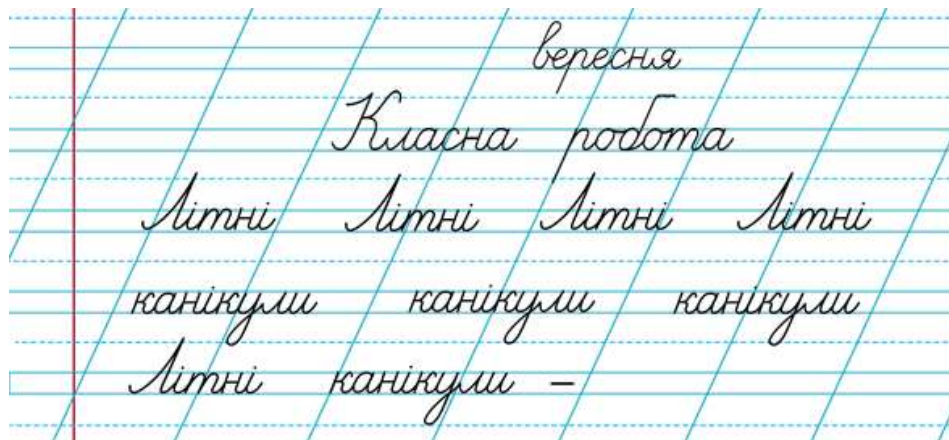 вересня
Класна робота
Літні Літні Літні Літні
канікули канікули канікули
Літні канікули –